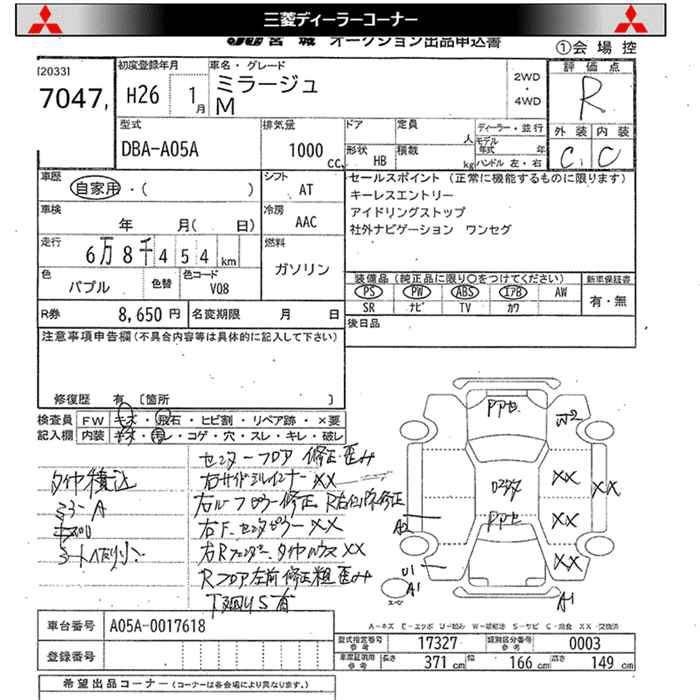 三菱ディーラーコーナー
JU 宮城 オークション出品申込書 ①会場控
[2033] 初度登録年月 車名・グレード 評価点
7047, H26 1月 ミラージュ 2WD・4WD R
M
型式 排気量 ドア 定員 人 ディーラー・並行 外装 内装
DBA-A05A 1000 cc 形状 HB 積載 kg モデル年式 年 ハンドル 左・右 C C
車歴 シフト セールスポイント (正常に機能するものに限ります)
自家用・( ) AT キーレスエントリー
車検 年 月( 日) 冷房 アイドリングストップ
AAC 社外ナビゲーション ワンセグ
走行 6万8千454km 燃料
ガソリン 装備品 (純正品に限り○をつけてください) 新車保証書
色 パプル 色替 色コード V08 PS PW ABS エアB AW 有・無
SR ナビ TV カワ
R券 8,650円 名変期限 月 日 後日品
注意事項申告欄(不具合内容等は具体的に記入して下さい)
修復歴 有 [箇所 ]
検査員 FW キズ・飛石・ヒビ割・リペア跡・×要
記入欄 内装 ・コゲ・穴・スレ・キレ・破レ
センターフロア 修正・歪み
タイヤ積込 右サイドシルインナー XX
ミラーA 右ルーフピラー修正
右F.センタピラー XX
右Rフェンダー、タイヤハウス XX
Rフロア左前修正粗 歪み
下廻りS有
PPセ W2
XX XX
PPセ XX
A2 XX
U1 A1 A1
A-キズ E-エクボ U-凹み W-補修跡 S-サビ C-腐食 XX-交換済
車台番号 A05A-0017618
型式指定番号 参考 17327 類別区分番号 参考 0003
登録番号
車庫証明用 参考 長さ 371 cm 幅 166 cm 高さ 149 cm
希望出品コーナー (コーナーは各会場により異なります。)